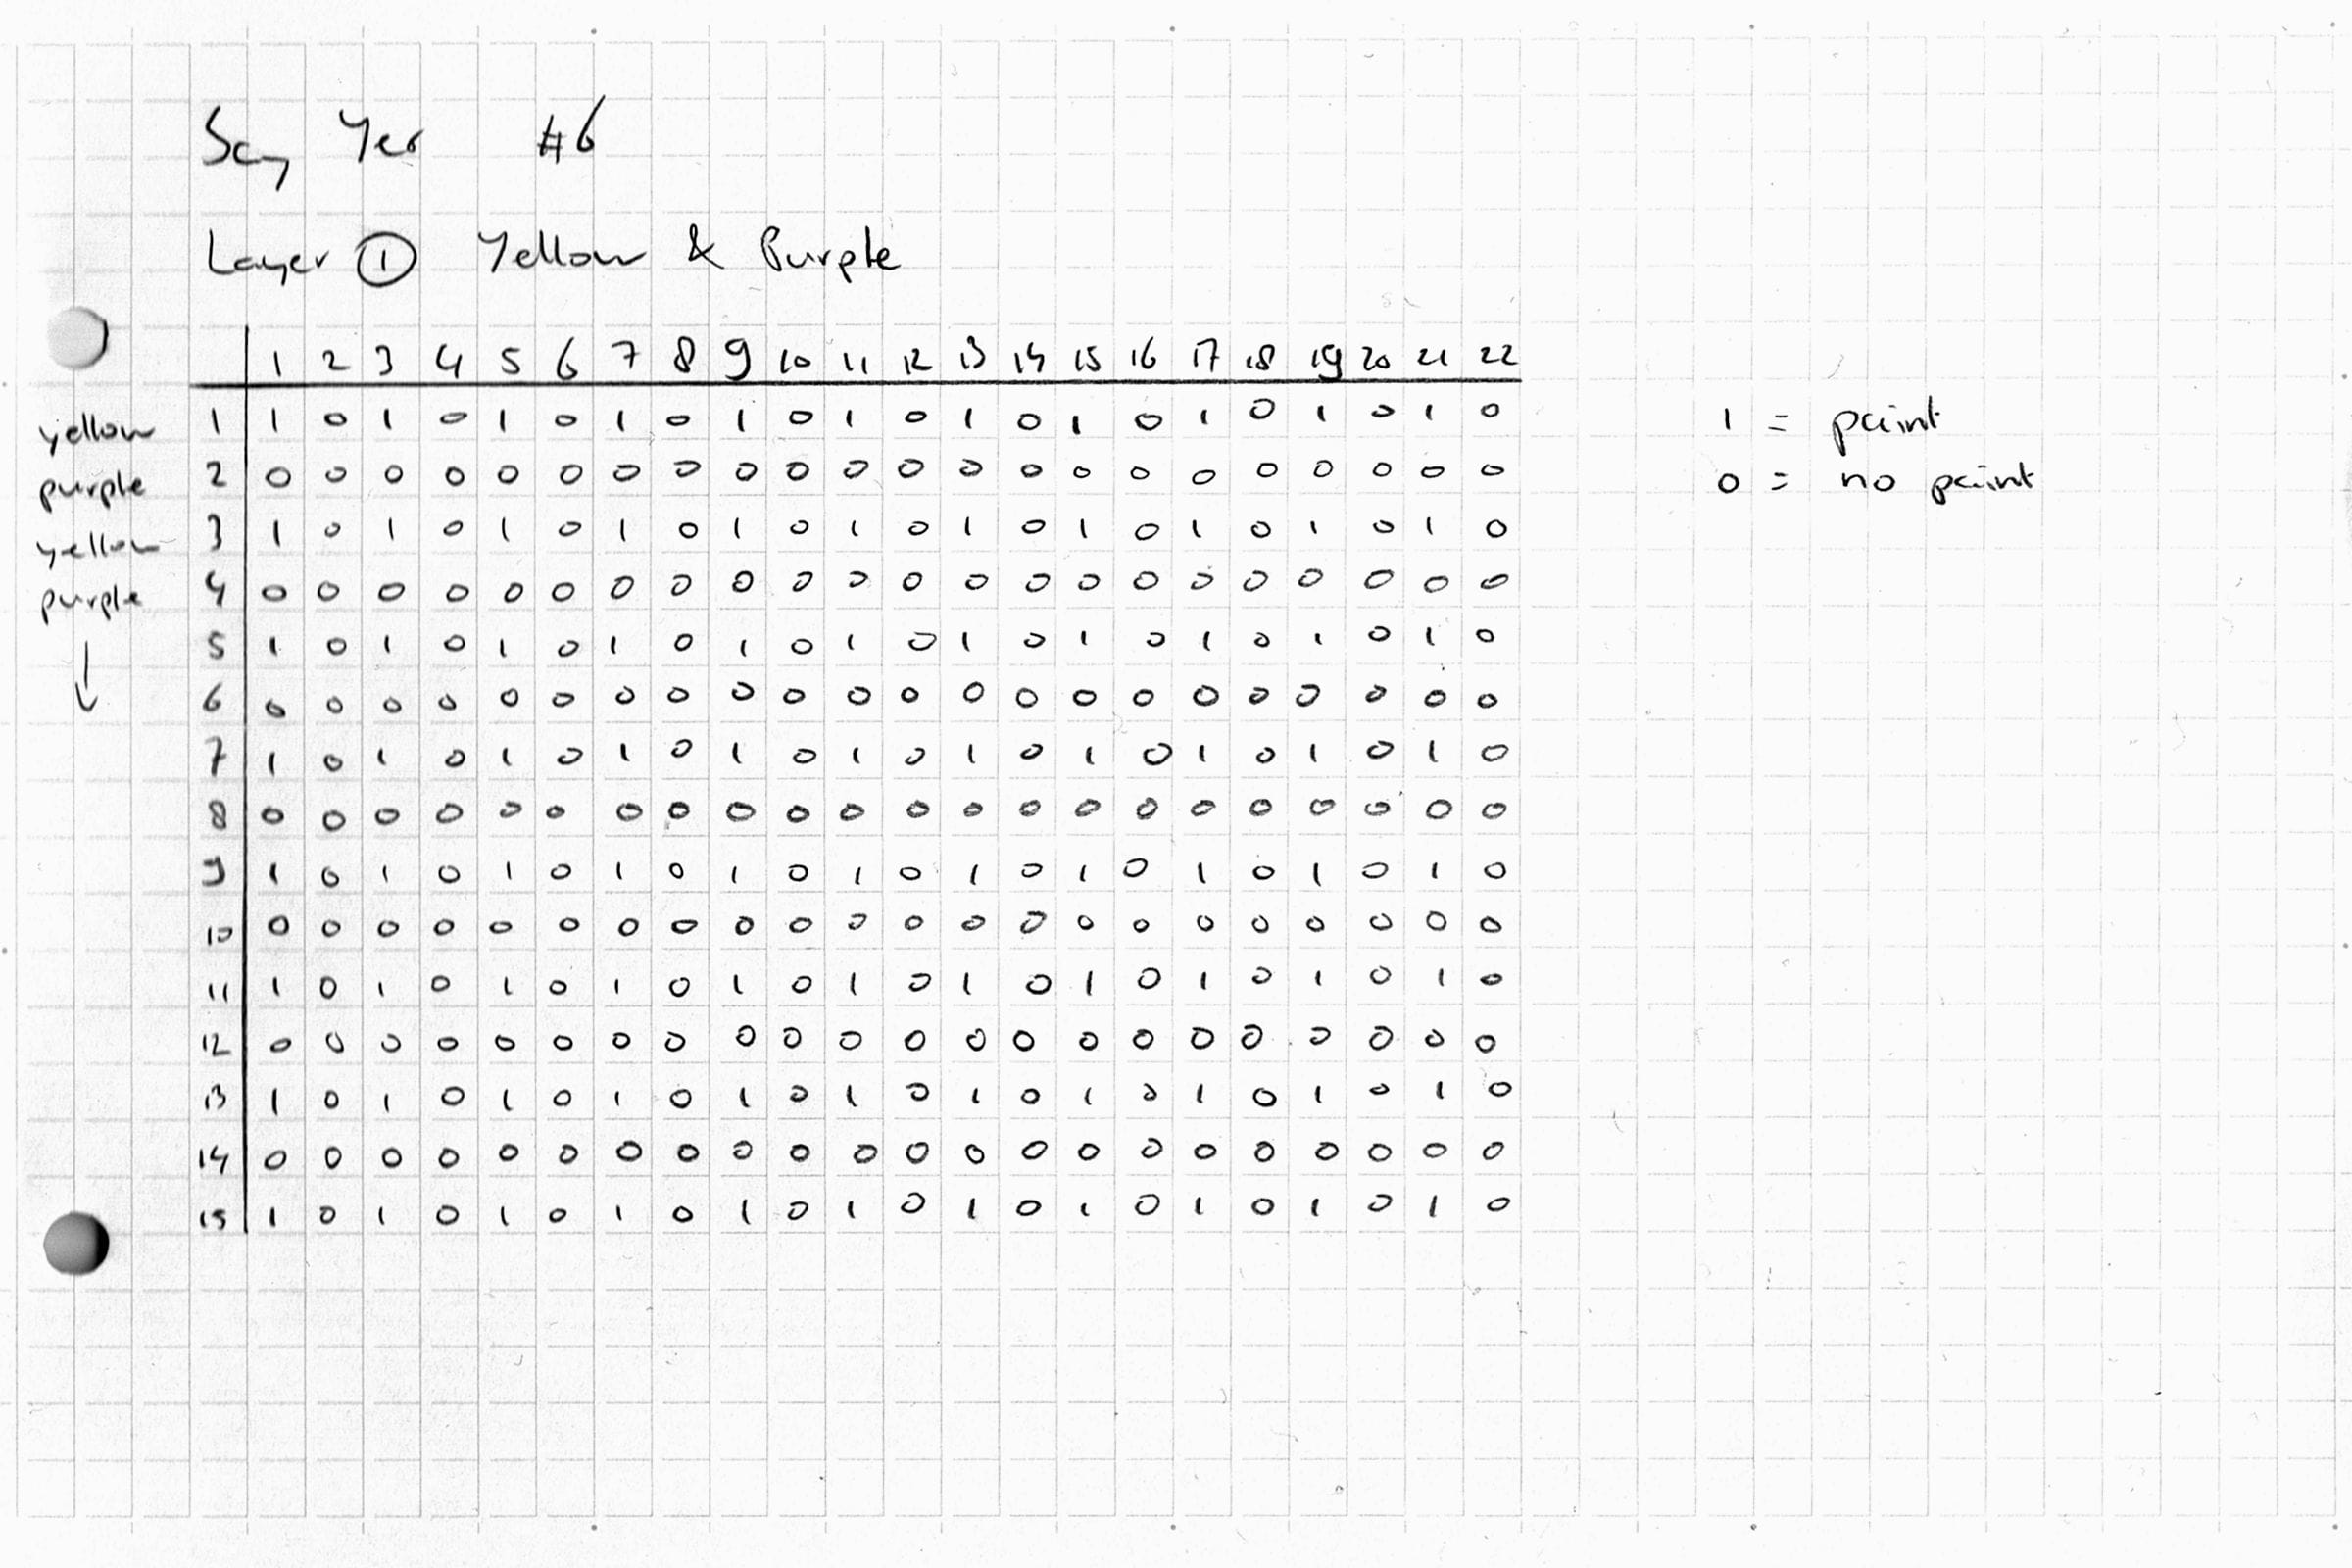 Say Yes #6
Layer ① Yellow & Purple
1 2 3 4 5 6 7 8 9 10 11 12 13 14 15 16 17 18 19 20 21 22
yellow 1 1 0 1 0 1 0 1 0 1 0 1 0 1 0 1 0 1 0 1 0 1 0 1 = paint
purple 2 0 0 0 0 0 0 0 0 0 0 0 0 0 0 0 0 0 0 0 0 0 0 0 = no paint
yellow 3 1 0 1 0 1 0 1 0 1 0 1 0 1 0 1 0 1 0 1 0 1 0
purple 4 0 0 0 0 0 0 0 0 0 0 0 0 0 0 0 0 0 0 0 0 0 0
↓ 5 1 0 1 0 1 0 1 0 1 0 1 0 1 0 1 0 1 0 1 0 1 0
6 0 0 0 0 0 0 0 0 0 0 0 0 0 0 0 0 0 0 0 0 0 0
7 1 0 1 0 1 0 1 0 1 0 1 0 1 0 1 0 1 0 1 0 1 0
8 0 0 0 0 0 0 0 0 0 0 0 0 0 0 0 0 0 0 0 0 0 0
9 1 0 1 0 1 0 1 0 1 0 1 0 1 0 1 0 1 0 1 0 1 0
10 0 0 0 0 0 0 0 0 0 0 0 0 0 0 0 0 0 0 0 0 0 0
11 1 0 1 0 1 0 1 0 1 0 1 0 1 0 1 0 1 0 1 0 1 0
12 0 0 0 0 0 0 0 0 0 0 0 0 0 0 0 0 0 0 0 0 0 0
13 1 0 1 0 1 0 1 0 1 0 1 0 1 0 1 0 1 0 1 0 1 0
14 0 0 0 0 0 0 0 0 0 0 0 0 0 0 0 0 0 0 0 0 0 0
15 1 0 1 0 1 0 1 0 1 0 1 0 1 0 1 0 1 0 1 0 1 0